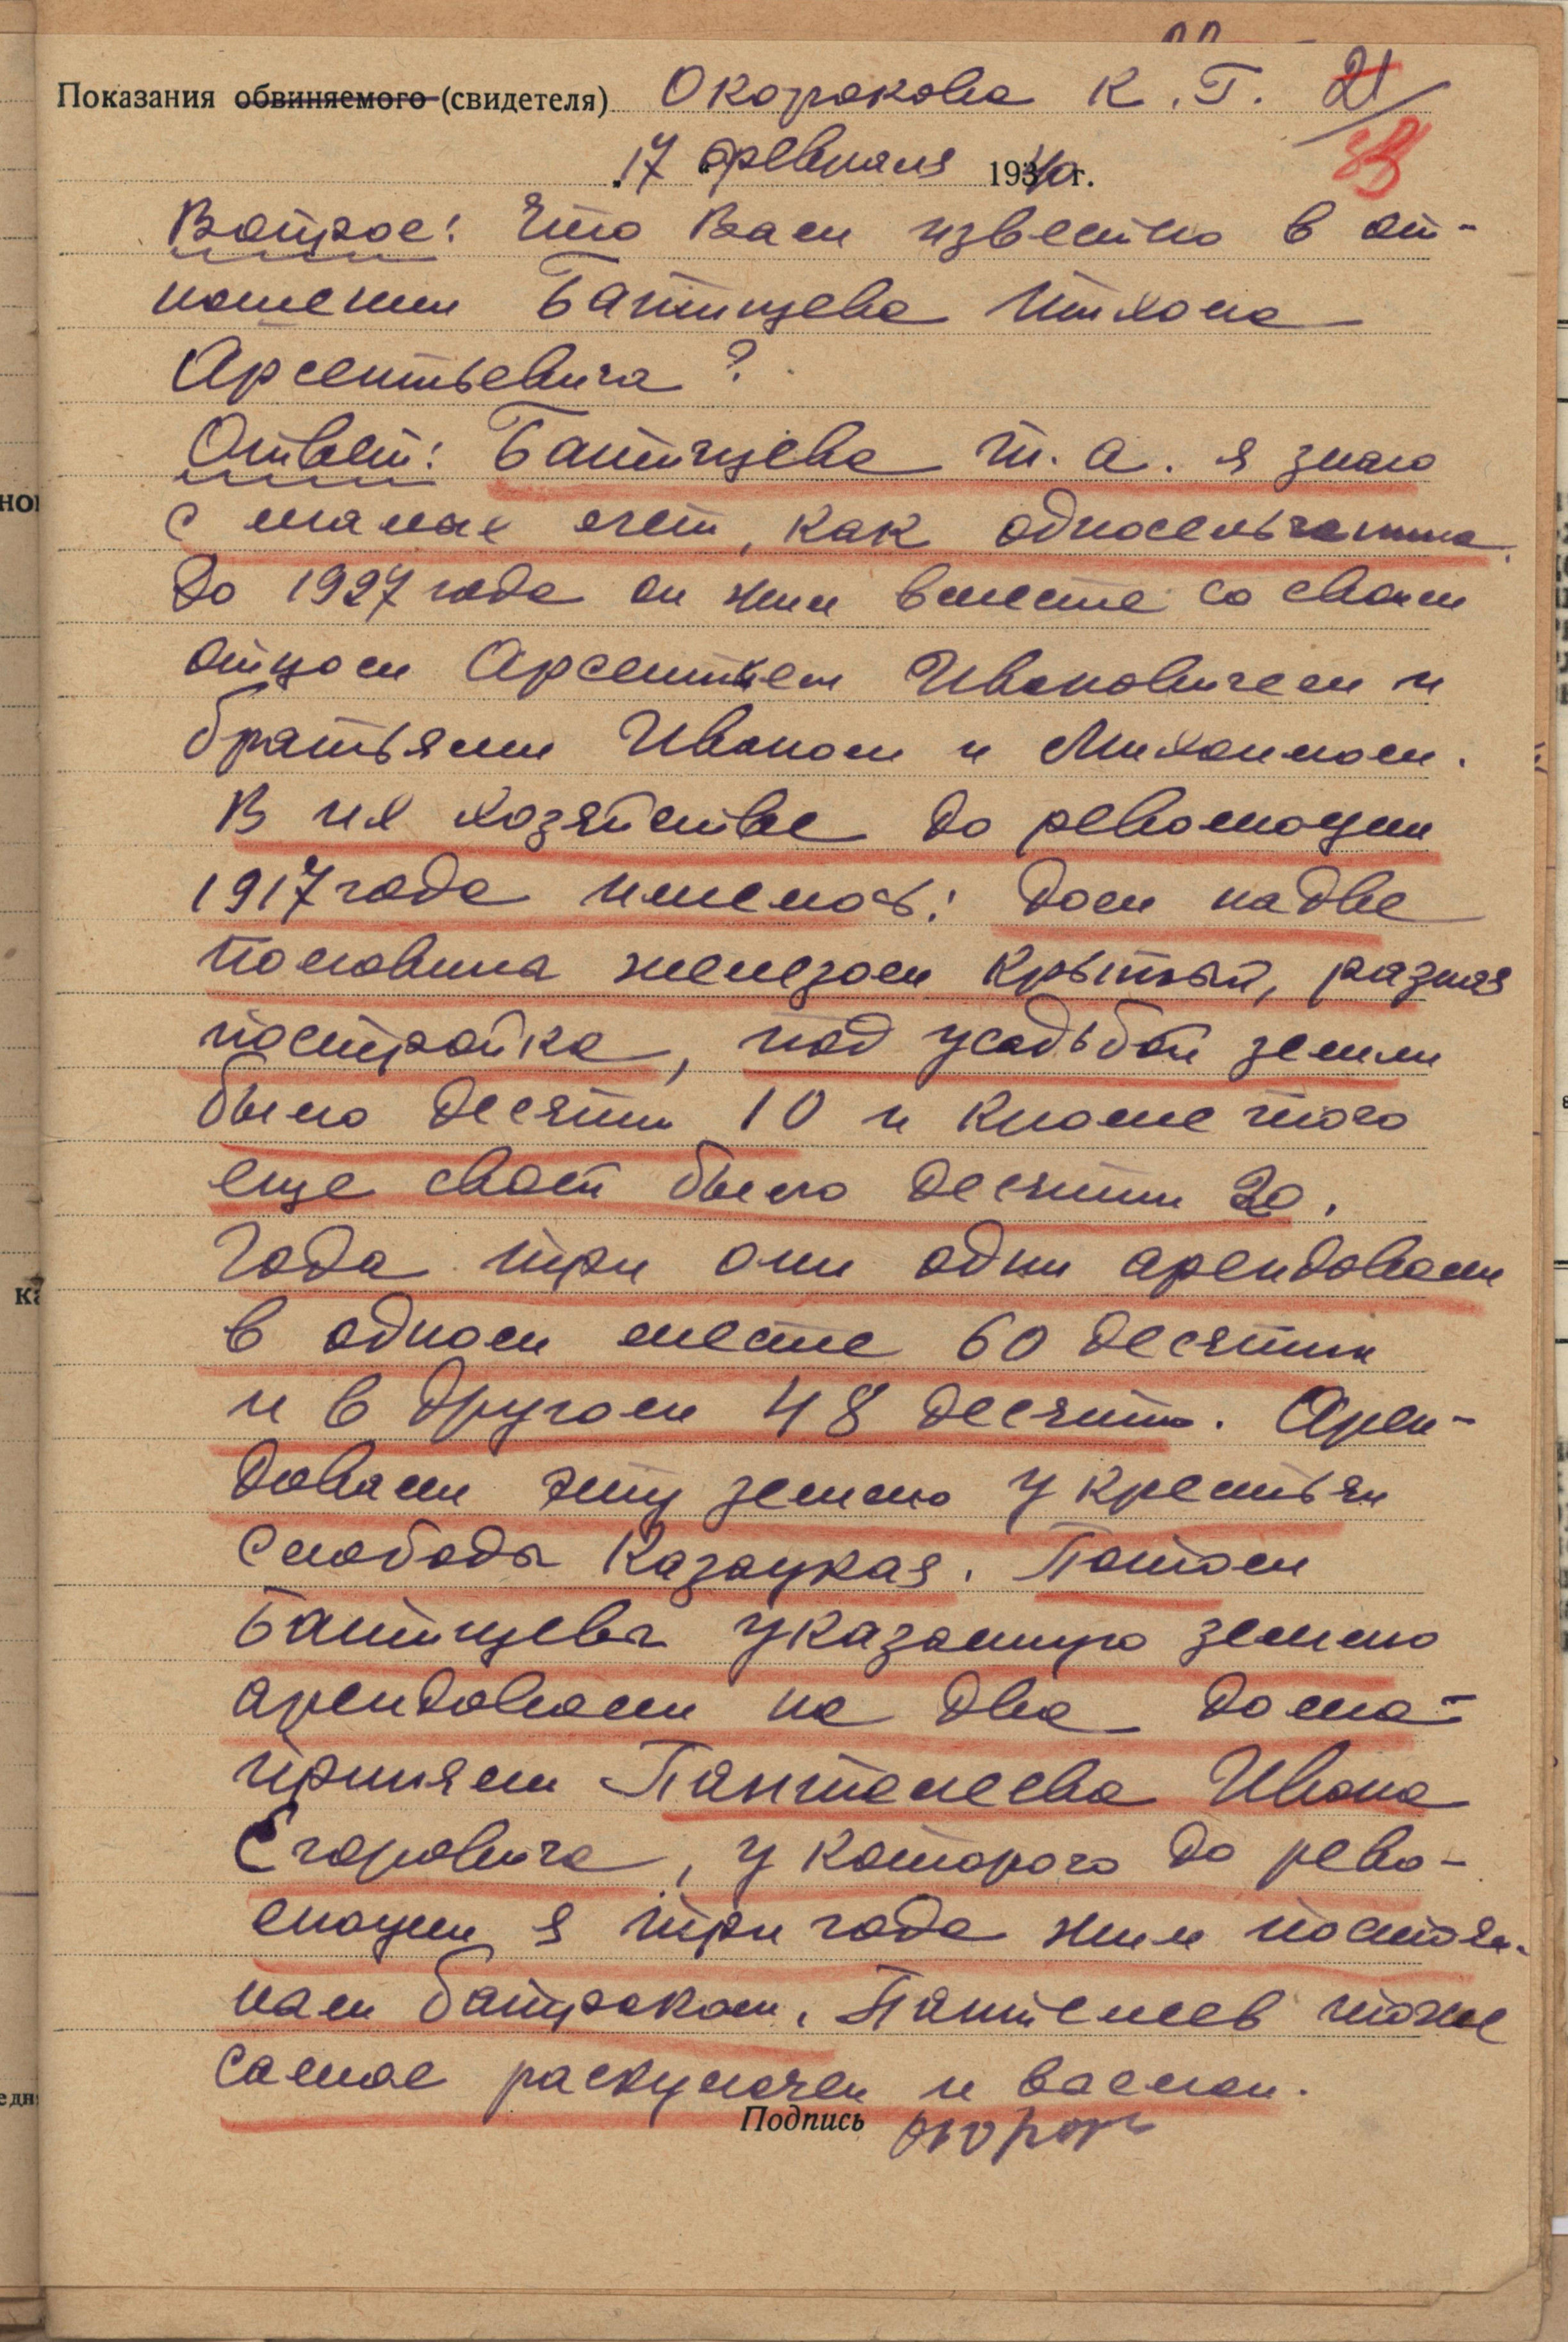 Показания обвиняемого (свидетеля) Окорокова К. Г. 21
"17 февраля 1940 г.
Вопрос: Что Вам известно в от-
ношении Батищева Тихона
Арсентьевича?
Ответ: Батищева Т. А. я знаю
с малых лет, как односельчанина.
До 1927 года он жил вместе со своим
отцом Арсентием Ивановичем и
братьями Иваном и Михаилом.
В их хозяйстве до революции
1917 года имелось: дом на две
половина железом крытый, разная
постройка, под усадьбой земли
было десятин 10 и кроме того
еще своей было десятин 20.
Года три они одни арендовали
в одном месте 60 десятин
и в другом 48 десятин. Арен-
довали эту землю у крестьян
слободы Казацкая. Потом
Батищевы указанную землю
арендовали на два дома-
приняли Пантелеева Ивана
Егоровича, у которого до рево-
люции я три года жил постоян-
ным батраком. Пантелеев тоже
самое раскулачен и выслан.
Подпись